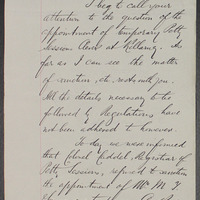 I beg to call your
attention to the question of the
appointment of temporary Petty
Sessions Clerk at Killarney. As
far as I can see the matter
of sanction, etc. rests with you.
All the details necessary to be
followed by Regulations have
not been adhered to however.
To-day we were informed
that Colonel Riddel, Registrar of
Petty Sessions, refused to sanction
the appointment of Mr M. J.